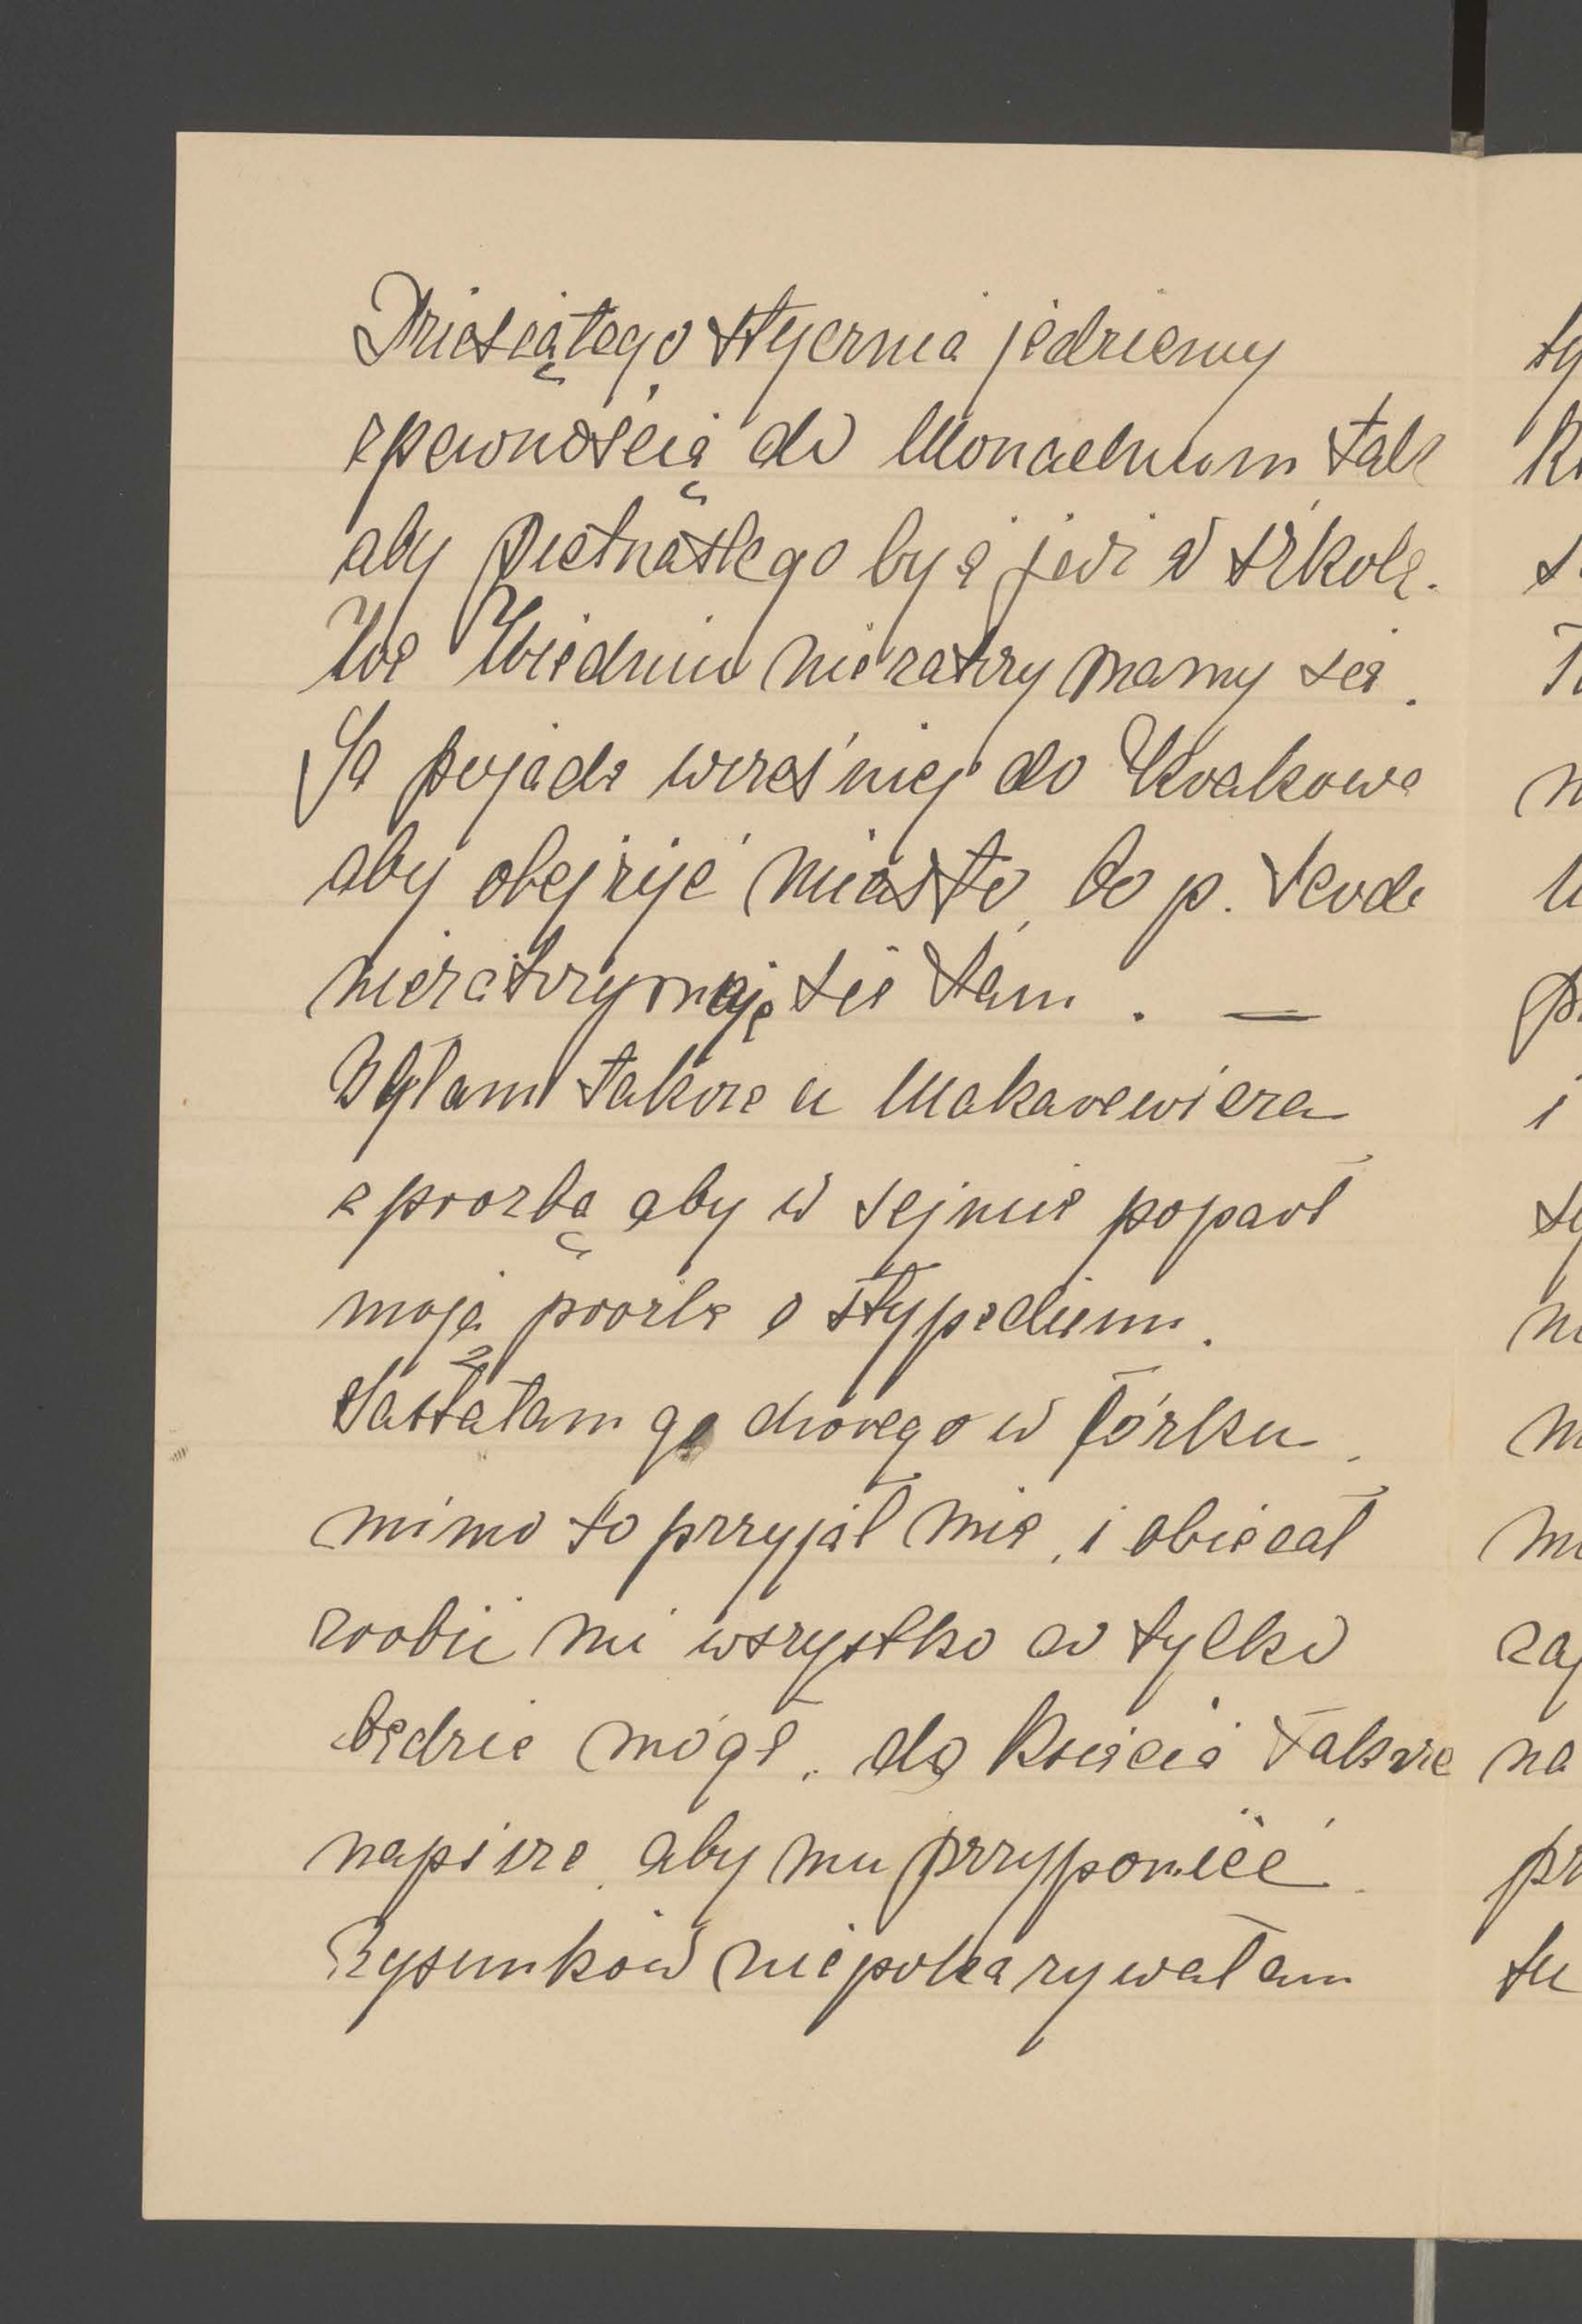 Dziesiątego stycznia jedziemy
zpewnością do Monachium tak
aby pietnastego być już w szkole.
We Wiedniu niezatrzymamy się.
Ja pojadę wcześniej do Krakowa
aby obejżyć miasto, bo p.
niezatrzymaję się tam. —
Byłam takze u Makarewicza
z prozbą aby w sejmie poparł
moją prozbę o stypedium.
Zastałam go chorego w łózku,
mimo to przyjął mię, i obiecał
zrobić mi wszystko co tylko
będzie mógł, do Księcia także
napisze, aby mu przypomieć.
Rysunków niepokazywałam
ty
K
s
T
n
u
p
i
sy
n
m
m
zaj
na
pr
tu